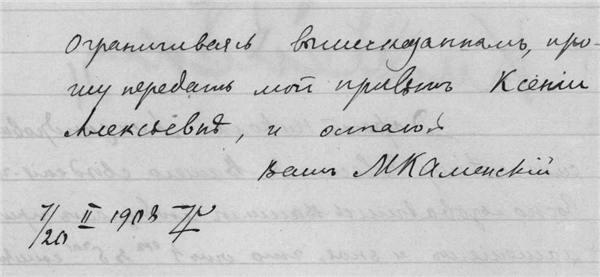 Ограничиваясь вышесказаннымъ, про-
шу передать мой привѣтъ Ксеніи
Алексѣевнѣ, и остаюсь
Вашъ МКаменскій
7/20 II 1908